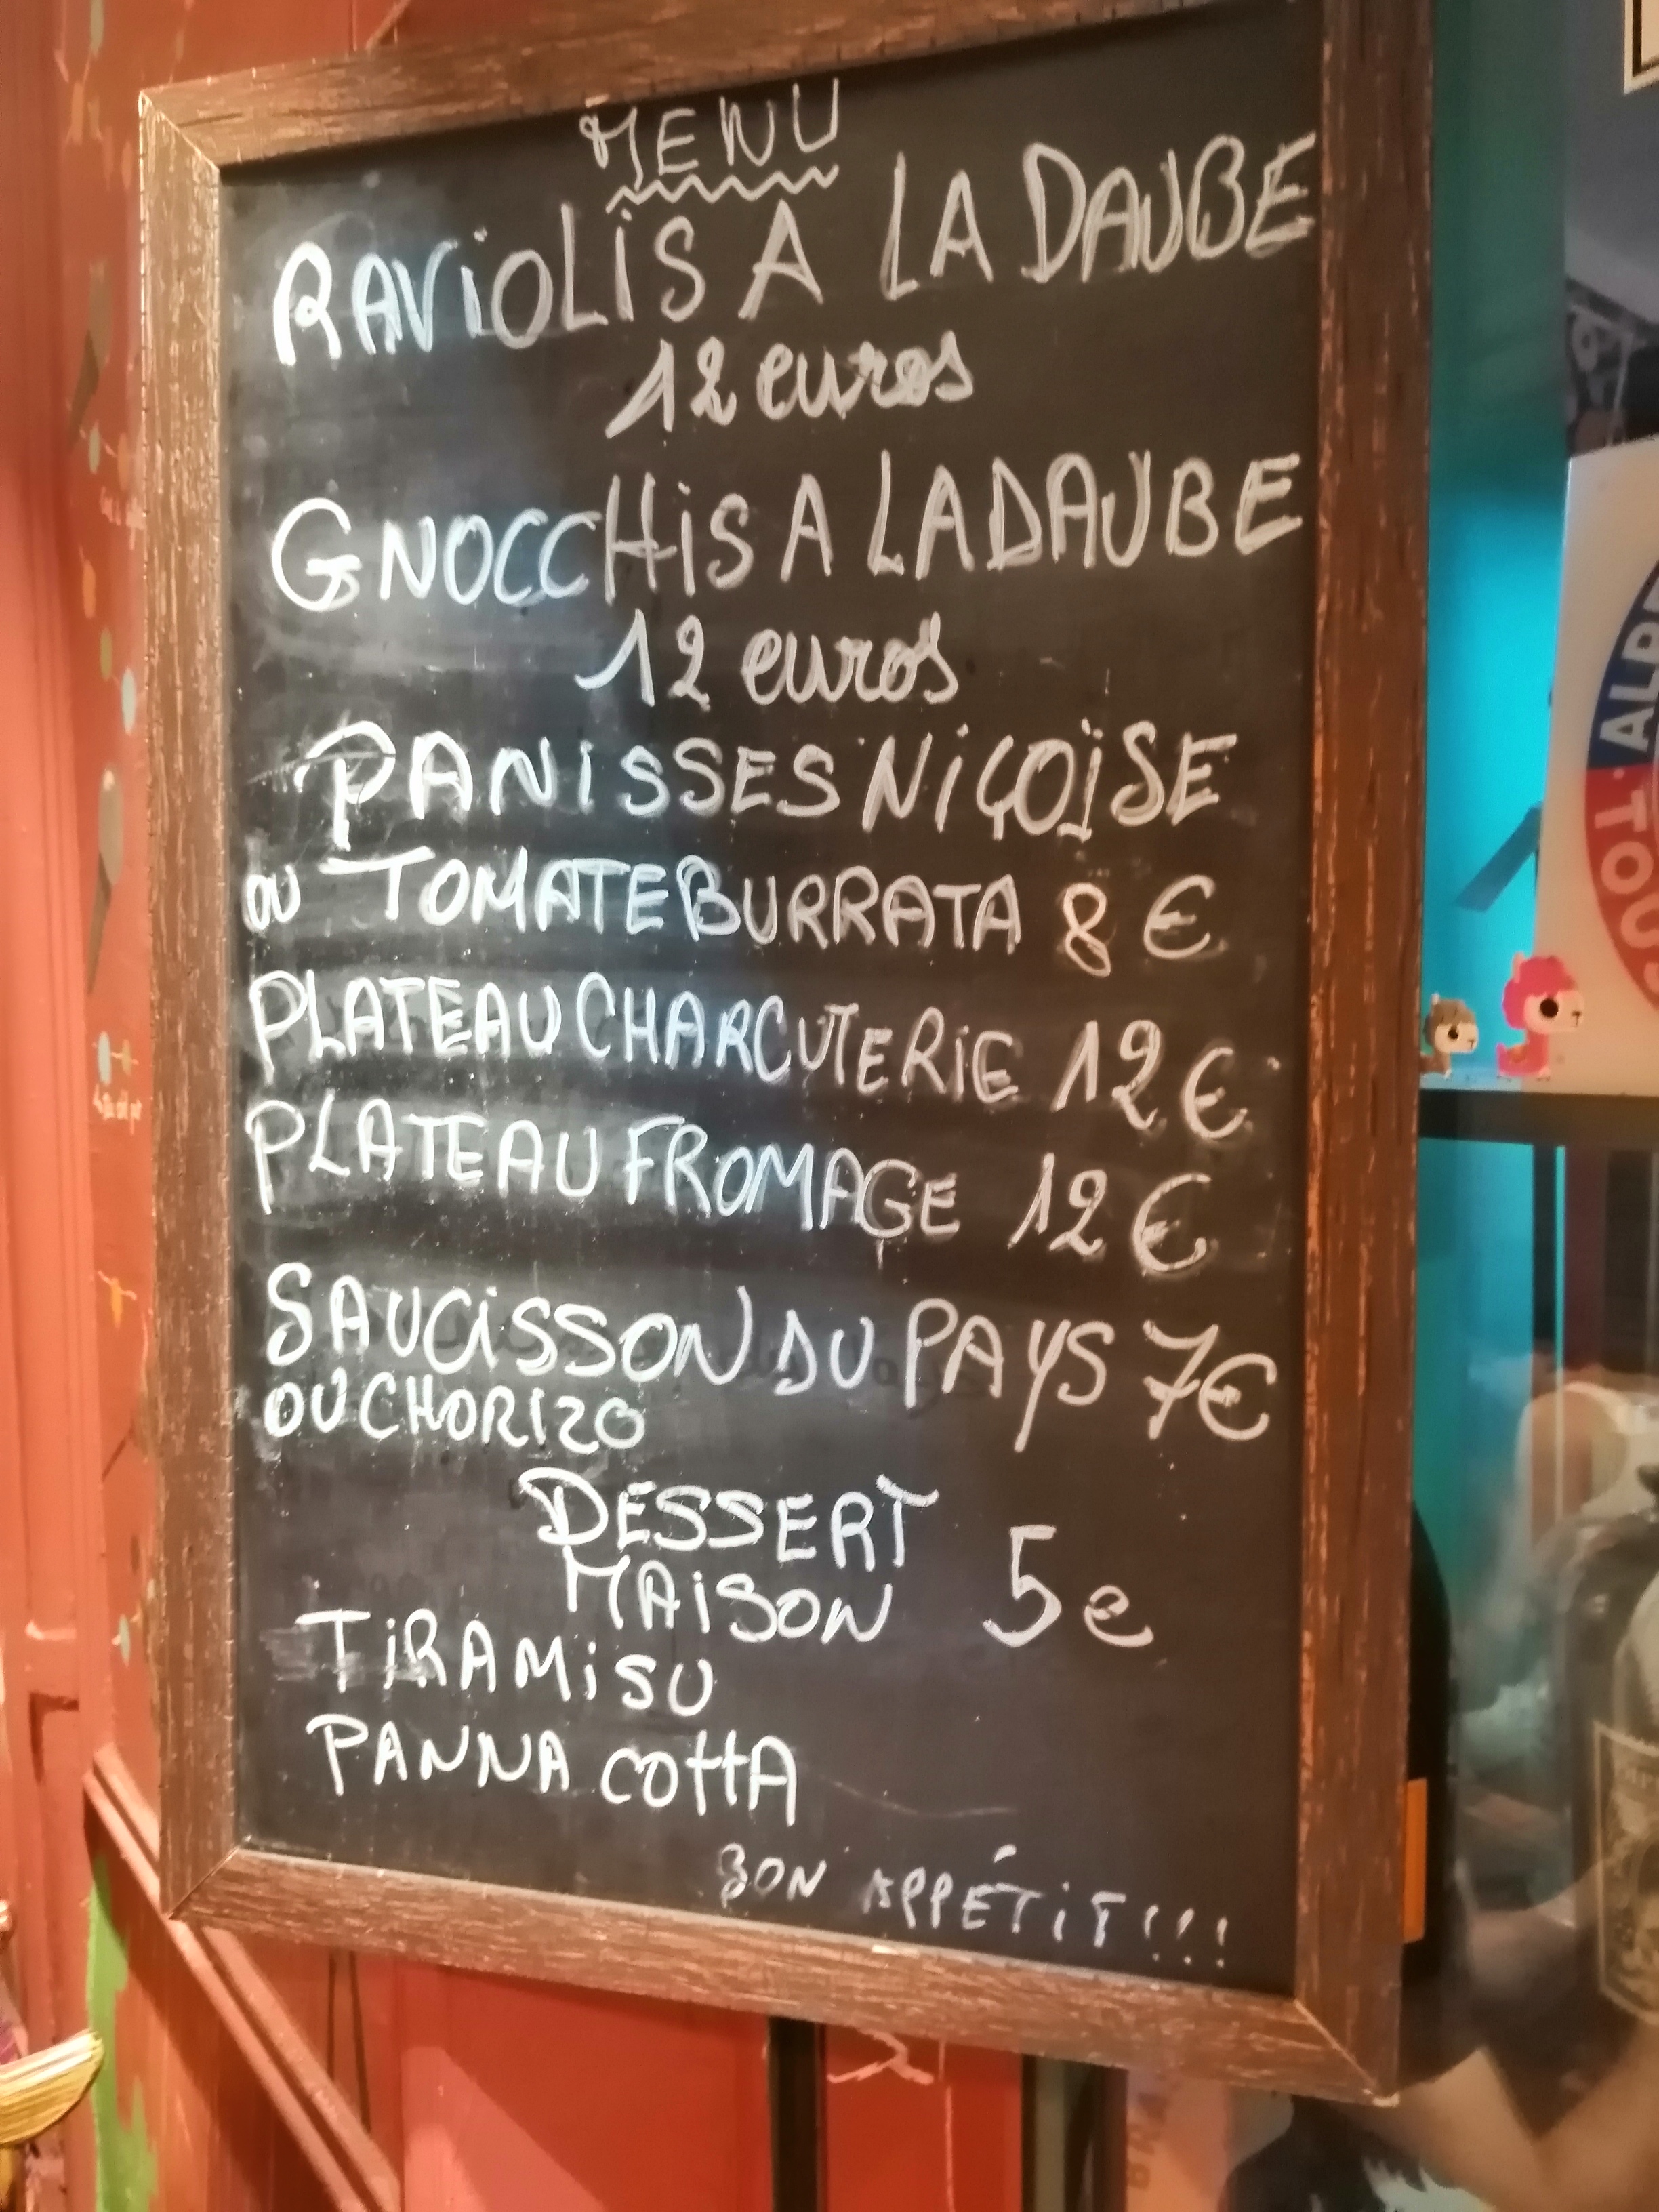 MENU
RAViOLiS A LA DAUBE
12 euros
GNOCCHiS A LA DAUBE
12 euros
PANISSES NiÇOïSE
OU TOMATE BURRATA 8 €
PLATEAU CHARCUTERiE 12 €
PLATEAU FROMAGE 12 €
SAUCiSSON DU PAYS 7€
OU CHORIZO
DESSERT
MAiSON 5e
TiRAMiSU
PANNA COttA
BON APPÉTiT!!!
ALPE
TOU